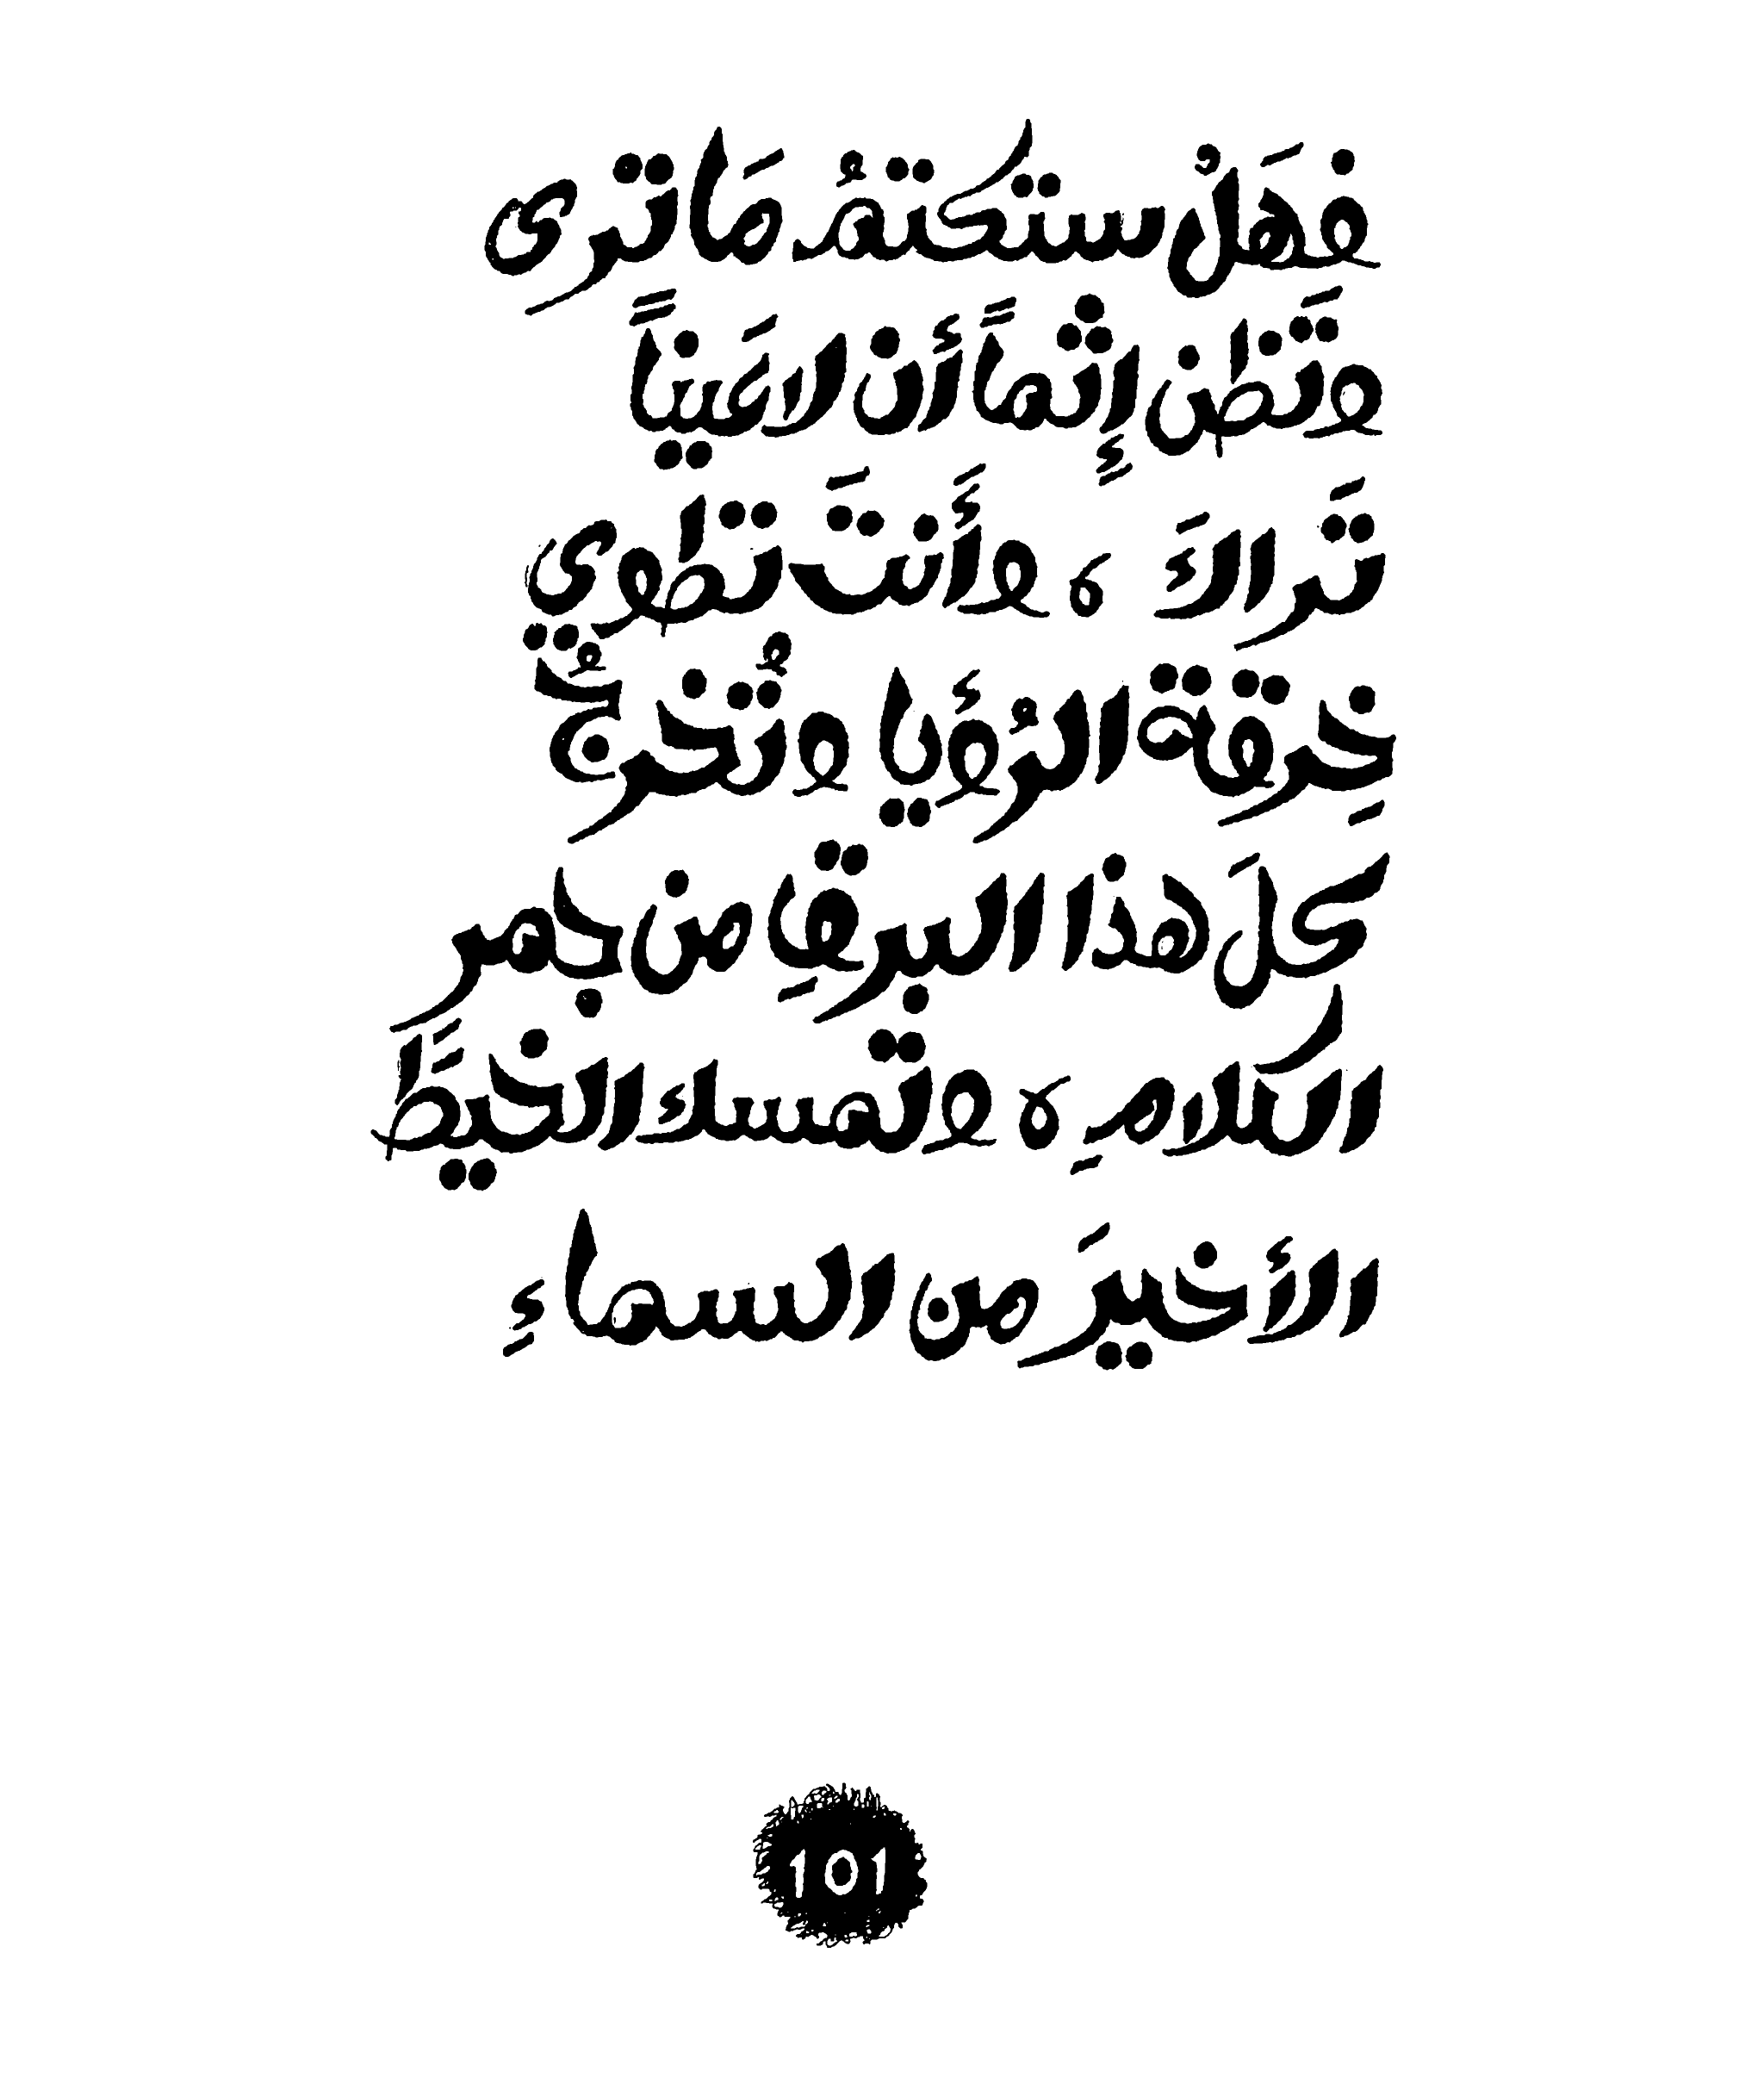 فهَلْ ستكتمُ مَا تَرى
وَتَظن إِثْماً أن لا عَيناً
تَراكَ ، وأَنتَ تطوي
خِرقة الرُؤَيا وتُخرجُ
كلَ هذا البرقِ من جمر
الكلامِ ، وتمسك الخيطَ
الأخيرَ من السماءِ
101